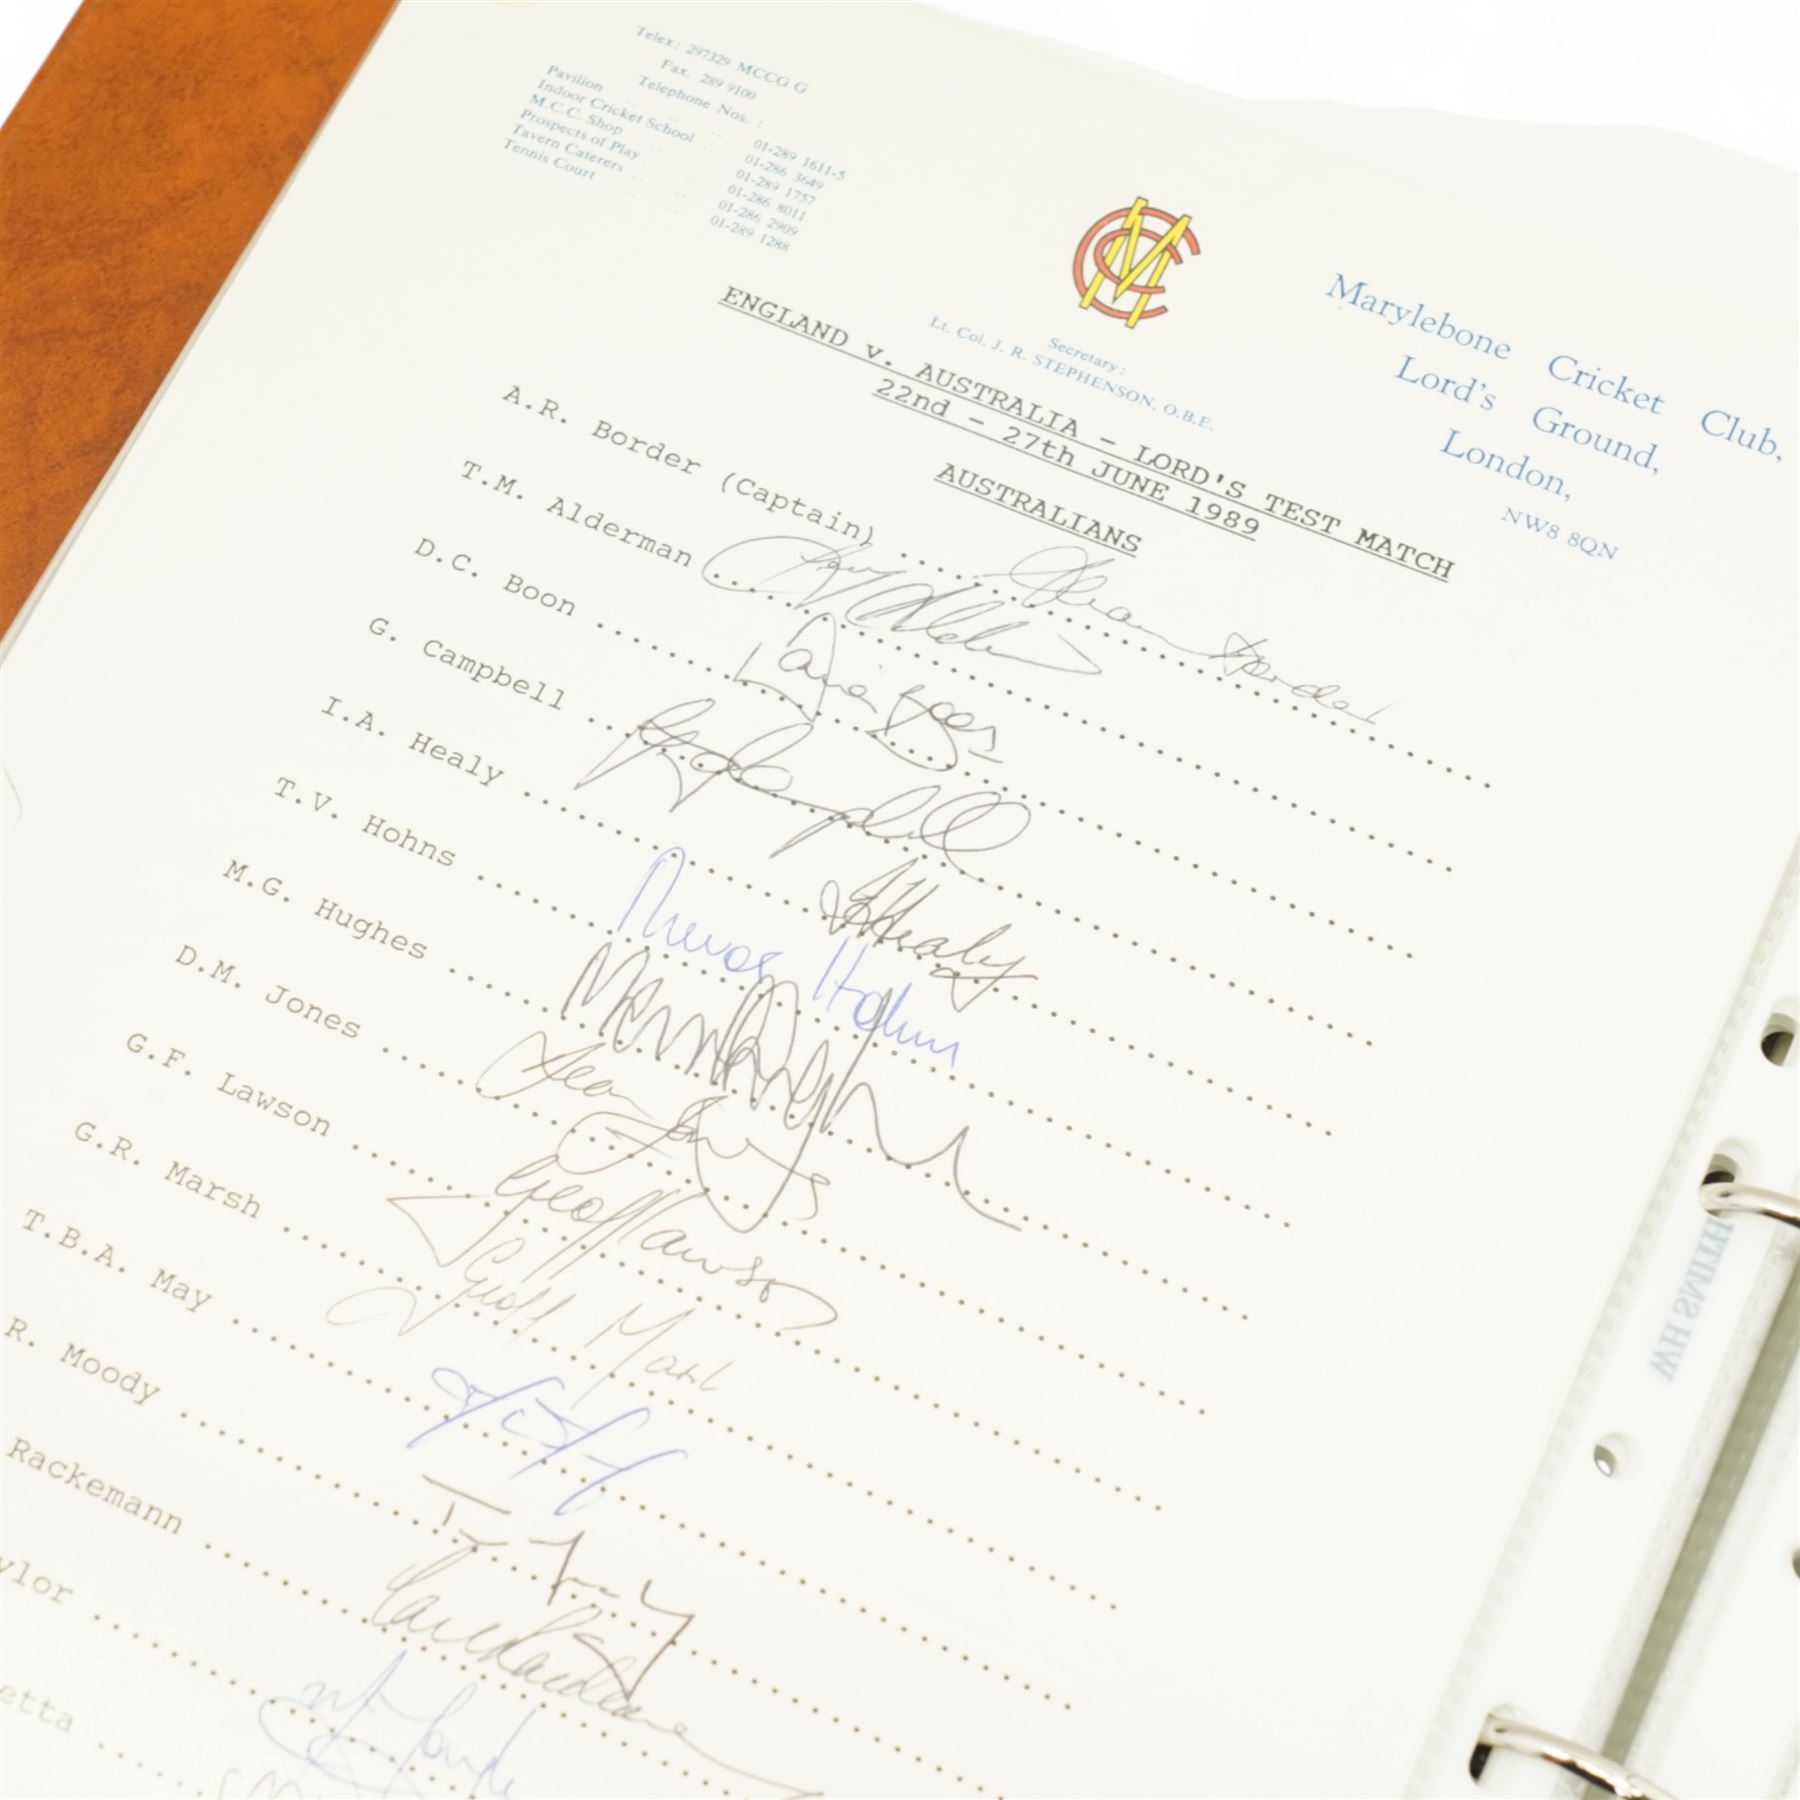 Telex: 297329 MCCG G
Fax. 289 9100
Telephone Nos. :
Pavilion .. .. 01-289 1611-5
Indoor Cricket School .. 01-286 3649
M.C.C. Shop .. .. 01-289 1757
Prospects of Play .. .. 01-286 8011
Tavern Caterers .. .. 01-286 2909
Tennis Court .. .. 01-289 1288
MCC
Secretary:
Lt. Col. J. R. STEPHENSON, O.B.E.
Marylebone Cricket Club,
Lord's Ground,
London,
NW8 8QN
ENGLAND v. AUSTRALIA - LORD'S TEST MATCH
22nd - 27th JUNE 1989
AUSTRALIANS
A.R. Border (Captain) Allan Border
T.M. Alderman
D.C. Boon David Boon
G. Campbell G Campbell
I.A. Healy I Healy
T.V. Hohns Trevor Hohns
M.G. Hughes Merv Hughes
D.M. Jones Dean Jones
G.F. Lawson Geoff Lawson
G.R. Marsh Geoff Marsh
T.B.A. May
R. Moody
Rackemann Carl Rackemann
ylor
etta
WH SMITH